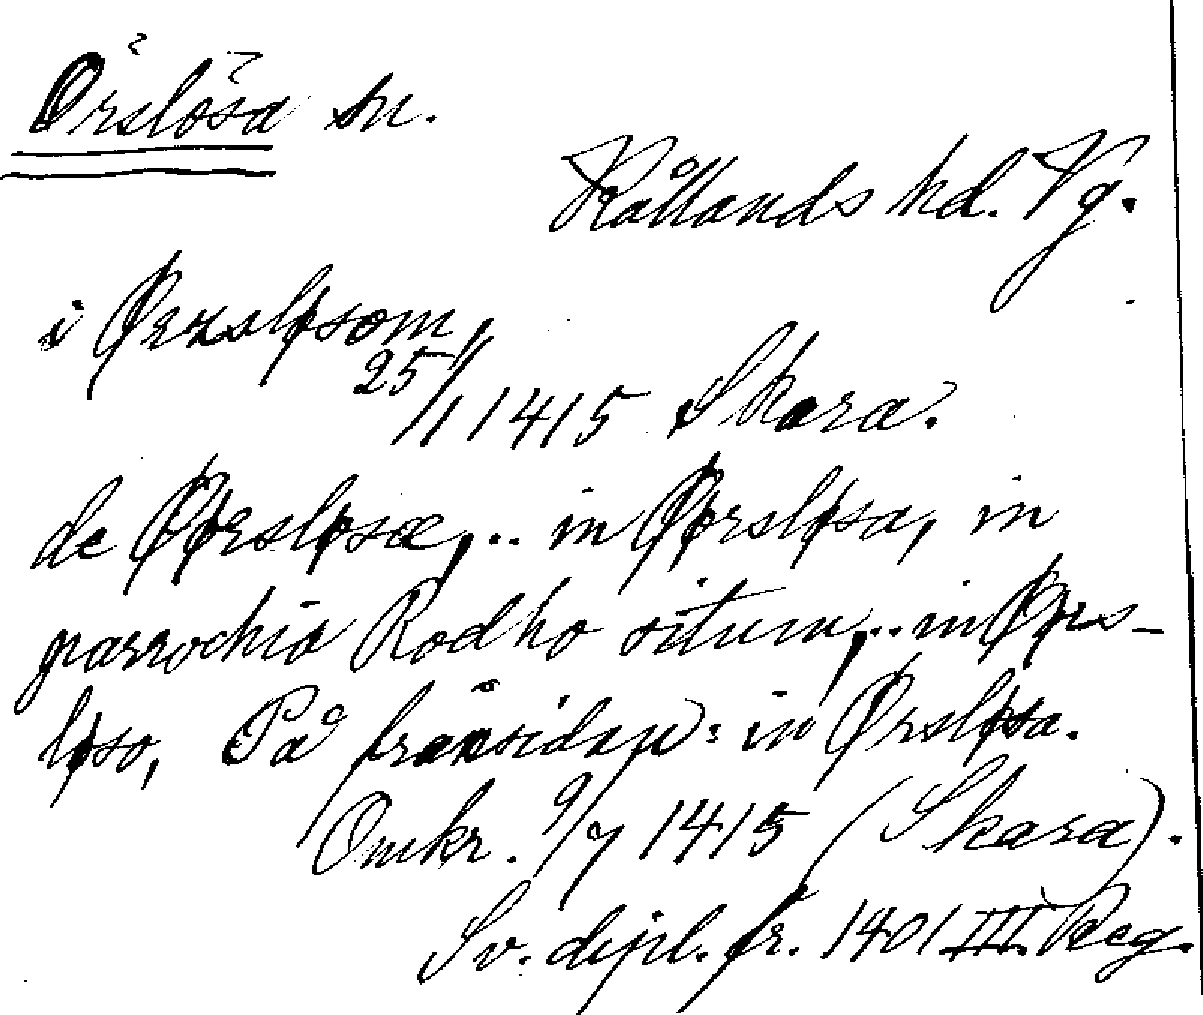 Örslösa sn.
Kållands hd. Vg.
i Ørzsløsom
25/1 1415 Skara.
de Øørsløsæ, .. in Øørsløsa, in
parrochia Rodho situm, .. in Øørs-
løso, På frånsidan: in Ørsløsa.
Omkr. 9/7 1415 (Skara).
Sv. dipl. fr. 1401 III. Reg.